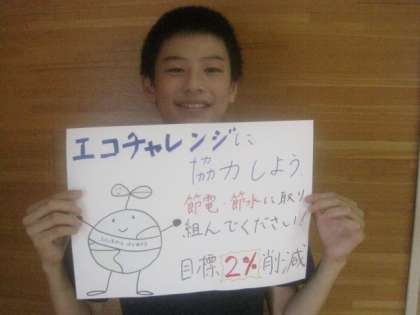 エコチャレンジに
協力しよう
節電・節水に取り
組んでください!
目標2%削減